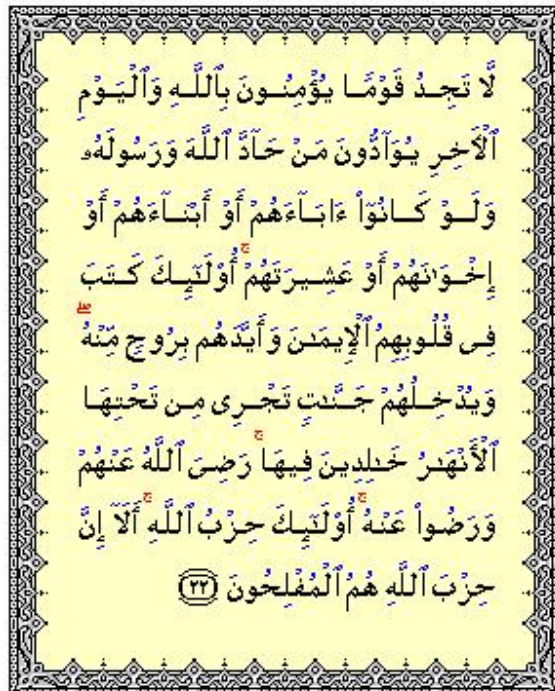 لَّا تَجِدُ قَوْمًا يُؤْمِنُونَ بِٱللَّهِ وَٱلْيَوْمِ
ٱلْأَخِرِ يُوَآدُّونَ مَنْ حَآدَّ ٱللَّهَ وَرَسُولَهُۥ
وَلَوْ كَانُوٓا۟ ءَابَآءَهُمْ أَوْ أَبْنَآءَهُمْ أَوْ
إِخْوَٰنَهُمْ أَوْ عَشِيرَتَهُمْ ۚ أُو۟لَٰٓئِكَ كَتَبَ
فِى قُلُوبِهِمُ ٱلْإِيمَٰنَ وَأَيَّدَهُم بِرُوحٍ مِّنْهُ ۖ
وَيُدْخِلُهُمْ جَنَّٰتٍ تَجْرِى مِن تَحْتِهَا
ٱلْأَنْهَٰرُ خَٰلِدِينَ فِيهَا ۚ رَضِىَ ٱللَّهُ عَنْهُمْ
وَرَضُوا۟ عَنْهُ ۚ أُو۟لَٰٓئِكَ حِزْبُ ٱللَّهِ ۚ أَلَآ إِنَّ
حِزْبَ ٱللَّهِ هُمُ ٱلْمُفْلِحُونَ ٢٢